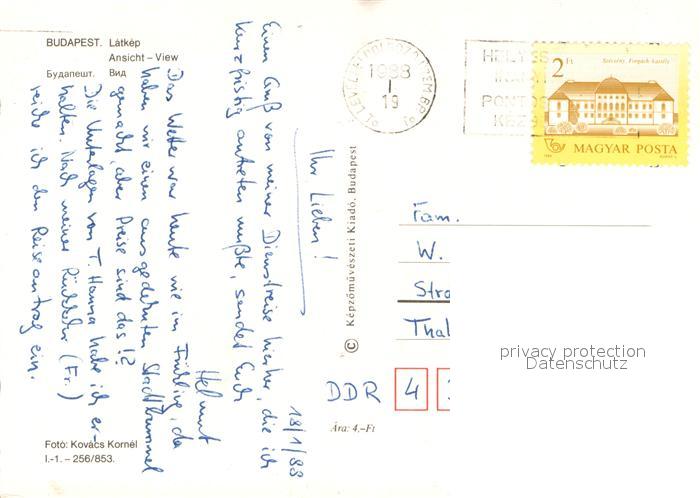 BUDAPEST. Látkép
Ansicht – View
Будапешт. Вид
18/1/88
Ihr Lieben!
Einen Gruß von meiner Dienstreise hierher, die ich
kurzfristig antreten mußte, sendet Euch
Helmut
Das Wetter war heute wie im Frühling, da
haben wir einen ausgedehnten Stadtbummel
gemacht, aber Preise sind das!?
Die Unterlagen von T. Hanna habe ich er-
halten. Nach meiner Rückkehr (Fr.)
reiche ich den Reiseantrag ein.
Fotó: Kovács Kornél
I.-1. – 256/853.
© Képzőművészeti Kiadó, Budapest
1988
I
19
HELYES
PONTOS
2 Ft
Szécsény, Forgách-kastély
MAGYAR POSTA
Fam.
W.
Stra
Thal
DDR 4
Ára: 4.–Ft
privacy protection
Datenschutz